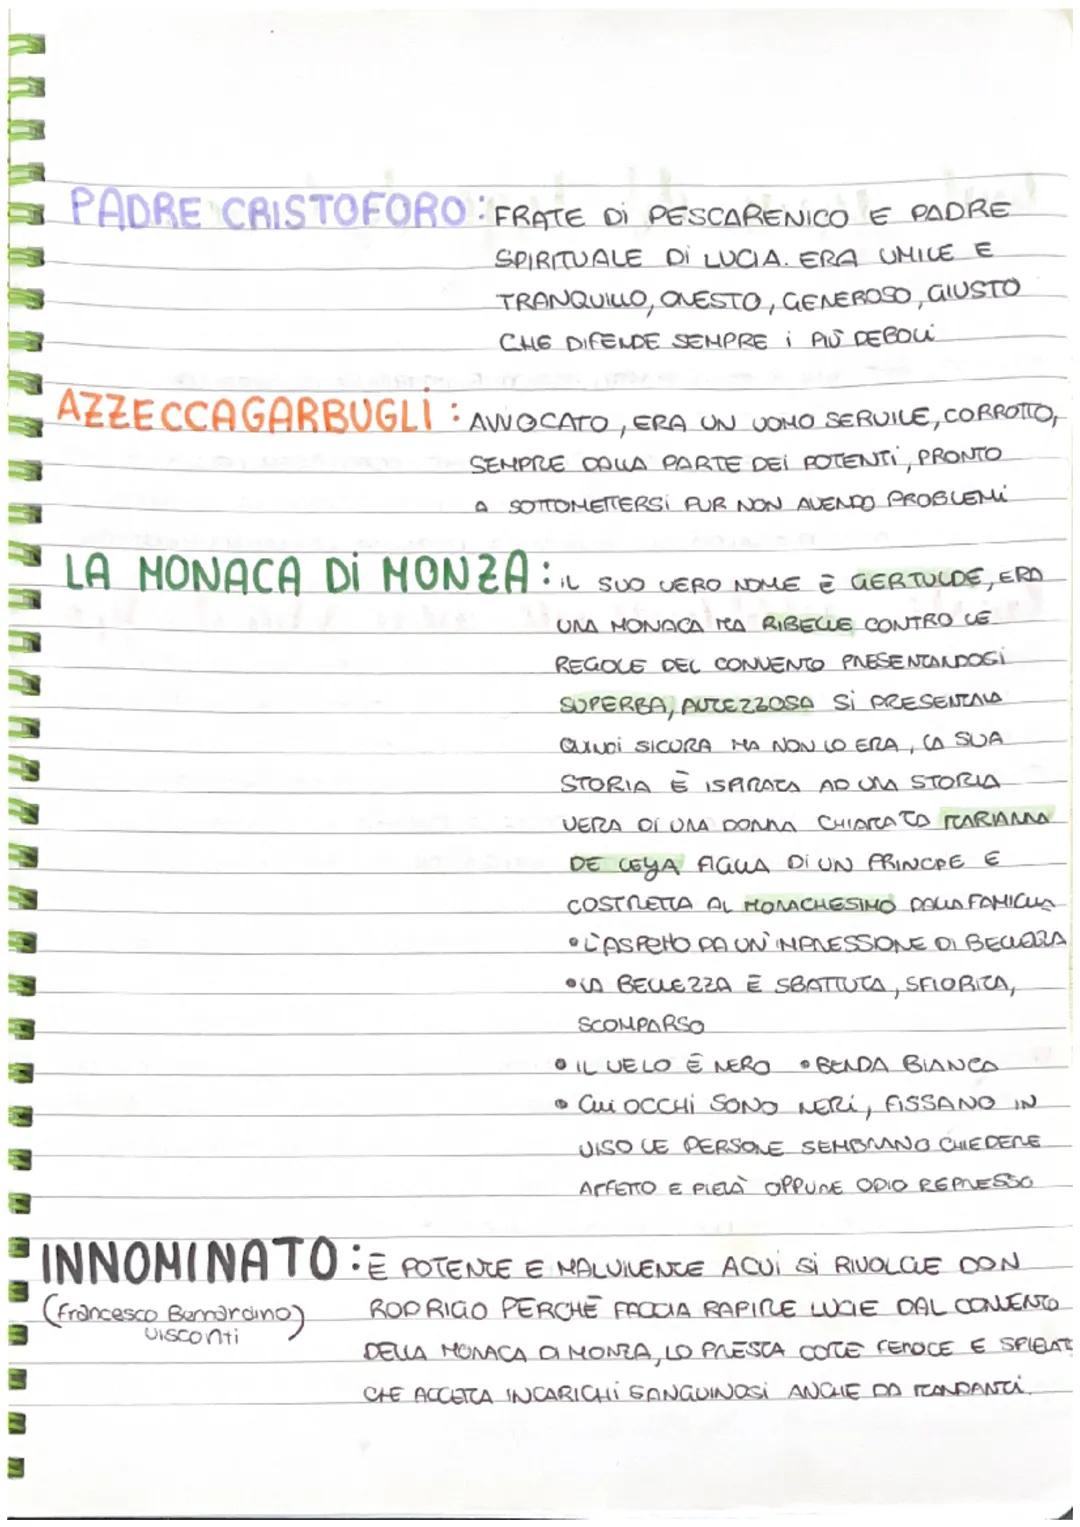 PADRE CRISTOFORO: FRATE Di PESCARENICO E PADRE
SPIRITUALE Di LUCIA. ERA UMILE E
TRANQUILLO, ONESTO, GENEROSO, GIUSTO
CHE DIFENDE SEMPRE i PIÙ DEBOLI
AZZECCAGARBUGLI: AVVOCATO, ERA UN UOMO SERVILE, CORROTTO,
SEMPRE DALLA PARTE DEI POTENTI, PRONTO
A SOTTOMETTERSI PUR NON AVENDO PROBLEMI
LA MONACA Di MONZA: IL SUO VERO NOME È GERTULDE, ERA
UNA MONACA MA RIBELLE CONTRO LE
REGOLE DEL CONVENTO PRESENTANDOSI
SUPERBA, ALTEZZOSA SI PRESENTAVA
QUINDI SICURA MA NON LO ERA, LA SUA
STORIA È ISPIRATA AD UNA STORIA
VERA DI UNA DONNA CHIAMATA MARIANNA
DE LEYA FIGLIA DI UN PRINCIPE E
COSTRETTA AL MONACHESIMO DALLA FAMIGLIA
• L'ASPETTO DA UN'IMPRESSIONE DI BELLEZZA
• LA BELLEZZA È SBATTUTA, SFIORITA,
SCOMPARSO
• IL VELO È NERO • BENDA BIANCA
• GLI OCCHI SONO NERI, FISSANO IN
VISO LE PERSONE SEMBRANO CHIEDERE
AFFETTO E PIETÀ OPPURE ODIO REPRESSO
INNOMINATO: È POTENTE E MALVIVENTE A CUI SI RIVOLGE DON
(Francesco Bernardino) RODRIGO PERCHÈ FACCIA RAPIRE LUCIE DAL CONVENTO
Visconti
DELLA MONACA DI MONZA, LO PRESTA COME FEROCE E SPIELATO
CHE ACCETTA INCARICHI SANGUINOSI ANCHE DA MANDANTI.